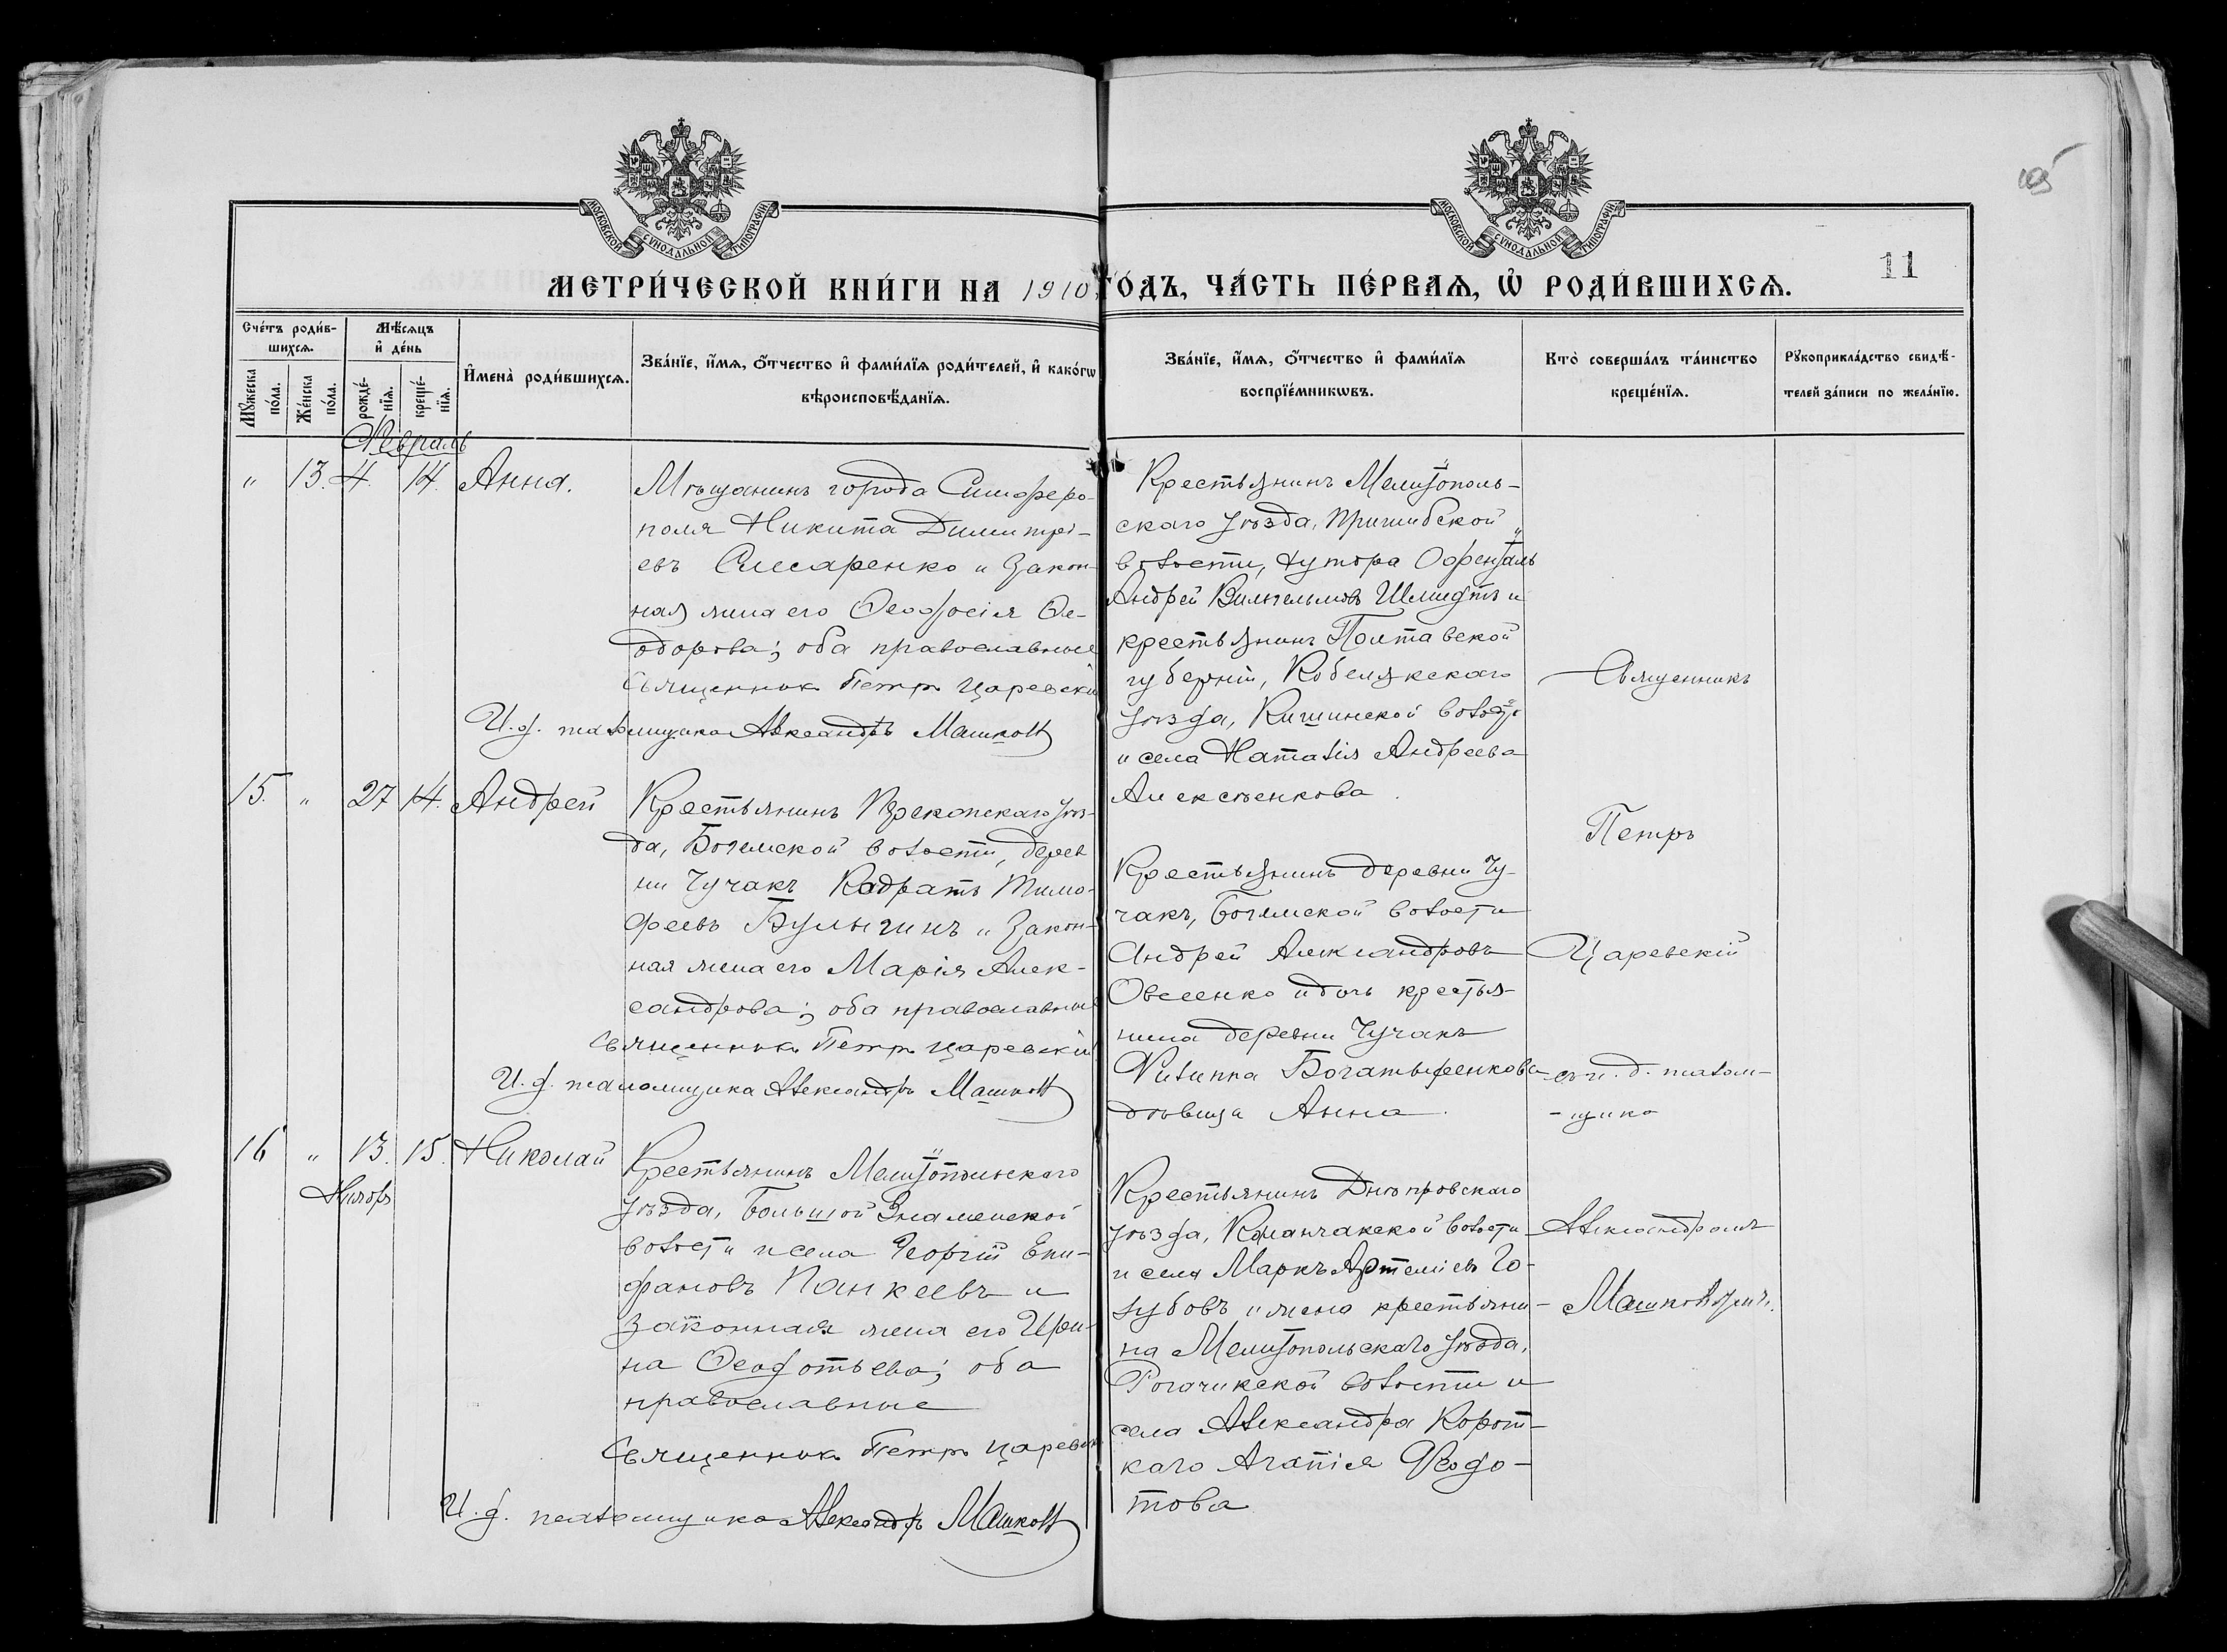 МОСКОВСКОЙ СУНОДАЛЬНОЙ ТИПОГРАФІИ
МОСКОВСКОЙ СУНОДАЛЬНОЙ ТИПОГРАФІИ
11
МЕТРИ́ЧЕСКОЙ КНИ́ГИ НА 1910 ГО́ДЪ, ЧА́СТЬ ПЕ́РВАѦ, Ѡ҆ РОДИ́ВШИХСѦ.
Сче́тъ роди́в-
шихсѧ.
Мѣ́сѧцъ
и҆ де́нь
Мꙋ́жеска
по́ла.
Же́нска
по́ла.
рожде́-
нїѧ.
креще́-
нїѧ.
И҆мена̀ роди́вшихсѧ.
Зва́нїе, и҆́мѧ, ѻ҆́тчество и҆ фами́лїѧ роди́телей, и҆ како́гѡ
вѣроисповѣ́данїѧ.
Зва́нїе, и҆́мѧ, ѻ҆́тчество и҆ фами́лїѧ
воспрїе́мникѡвъ.
Кто̀ соверша́лъ та́инство
креще́нїѧ.
Рꙋкоприкла́дство свидѣ́-
телей за́писи по жела́нїю.
Февраль
" 13. 4. 14. Анна.
Мѣщанинъ города Симферо-
поля Никита Димитрі-
евъ Слесаренко и закон-
ная жена его Ѳеодосія Ѳе-
одорова; оба православные
Священник Петръ Царевскій
И. д. псаломщика Александръ Машков
Крестьянинъ Мелитополь-
скаго уѣзда, Пришибской
волости, хутора Офенталь
Андрей Вильгельмовъ Шмидтъ и
крестьянинъ Полтавской
губерніи, Кобелякскаго
уѣзда, Кишинской волости
и села Наталія Андреева
Алексѣенкова.
15. " 27 14. Андрей
Крестьянинъ Перекопскаго уѣз-
да, Богемской волости, дерев
ни Чучакъ Кодратъ Тимо-
феевъ Булыгинъ и закон-
ная жена его Марія Алек-
сандрова; оба православные
Священник Петръ Царевскій
И. д. псаломщика Александръ Машков
Крестьянинъ деревни Чу-
чакъ, Богемской волости
Андрей Александровъ
Овсеенко и дочь крестья-
нина деревни Чучакъ
Филиппа Богатыренкова
дѣвица Анна.
16 " 13. 15. Николай
Январь
Крестьянинъ Мелитопольскаго
уѣзда, Большой Знаменской
волости и села Георгій Епи-
фановъ Панкеевъ и
законная жена его Ири-
на Ѳеодотьева; оба
православные
Священник Петръ Царевскій
И. д. псаломщика Александръ Машков
Крестьянинъ Днѣпровскаго
уѣзда, Каланчакской волости
и села Маркъ Артеміевъ Го-
лубовъ и жена крестьяни-
на Мелитопольскаго уѣзда,
Рогачикской волости и
села Александра Корот-
каго Агапія Ѳеодо-
това
Священникъ
Петръ
Царевскій
съ и. д. псалом-
-щика
Александромъ
Машковымъ.